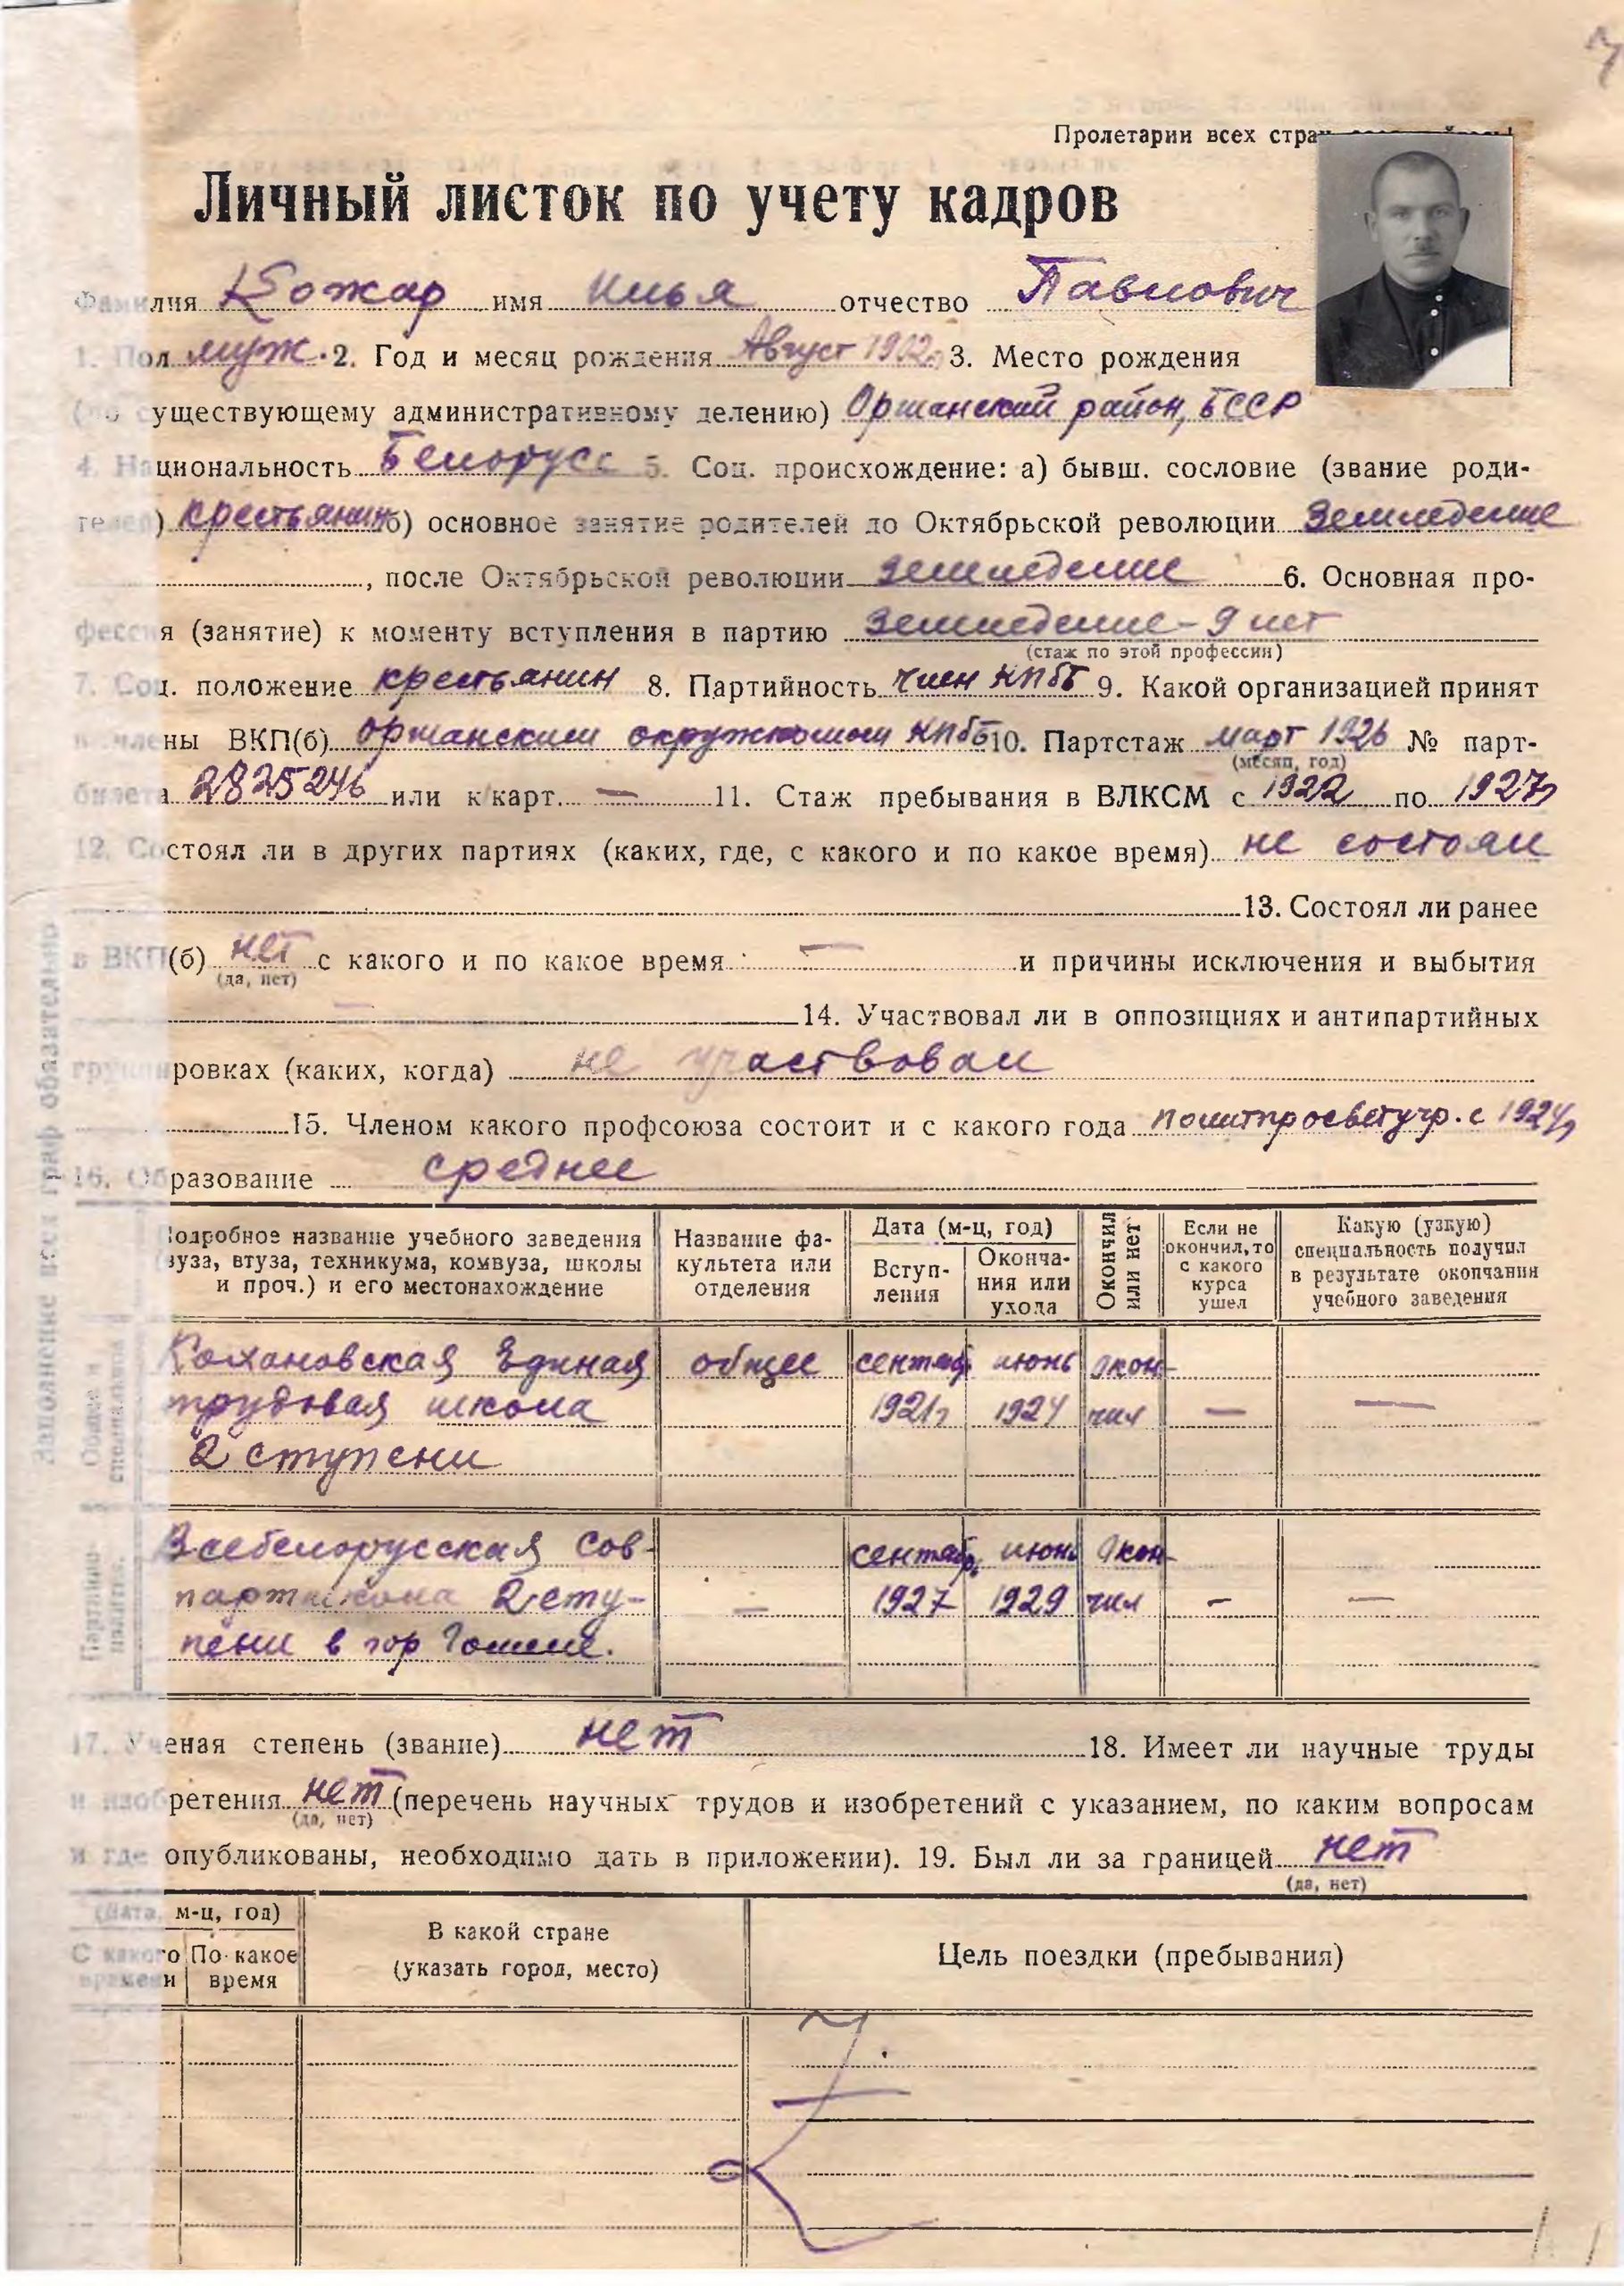 7
Пролетарии всех стран
Личный листок по учету кадров
Фамилия Кожар имя Илья отчество Павлович
1. Пол муж. 2. Год и месяц рождения Август 1902г. 3. Место рождения
существующему административному делению) Оршанский район, БССР
4. Национальность Белорусс 5. Соц. происхождение: а) бывш. сословие (звание роди-
телей) крестьянин б) основное занятие родителей до Октябрьской революции Земледелие
, после Октябрьской революции земледелие 6. Основная про-
фессия (занятие) к моменту вступления в партию Земледелие – 9 лет
(стаж по этой профессии)
7. Соц. положение крестьянин 8. Партийность член КПбБ 9. Какой организацией принят
в члены ВКП(б) Оршанским окружкомом КПбБ 10. Партстаж март 1926 № парт-
(месяц, год)
билета 2825246 или к/карт. — 11. Стаж пребывания в ВЛКСМ с 1922 по 1927г
12. Состоял ли в других партиях (каких, где, с какого и по какое время) не состоял
13. Состоял ли ранее
в ВКП(б) нет с какого и по какое время — и причины исключения и выбытия
(да, нет)
— 14. Участвовал ли в оппозициях и антипартийных
группировках (каких, когда) не участвовал
15. Членом какого профсоюза состоит и с какого года политпросветучр. с 1924г
16. Образование среднее
Заполнение всех граф обязательно
Подробное название учебного заведения
(вуза, втуза, техникума, комвуза, школы
и проч.) и его местонахождение
Название фа-
культета или
отделения
Дата (м-ц, год)
Вступ-
ления
Оконча-
ния или
ухода
Окончил
или нет
Если не
окончил, то
с какого
курса
ушел
Какую (узкую)
специальность получил
в результате окончания
учебного заведения
Общее и
специальное
Кохановская Единая общее сентябр июнь окон-
трудовая школа 1921г 1924 чил — —
2 ступени
Партийно-
полит.
Всебелорусская сов- сентябр. июнь окон-
партшкола 2 сту- — 1927 1929 чил — —
пени в гор Гомеле.
17. Ученая степень (звание) нет 18. Имеет ли научные труды
и изобретения нет (перечень научных трудов и изобретений с указанием, по каким вопросам
(да, нет)
и где опубликованы, необходимо дать в приложении). 19. Был ли за границей нет
(да, нет)
(Дата, м-ц, год)
С какого
времени
По какое
время
В какой стране
(указать город, место)
Цель поездки (пребывания)